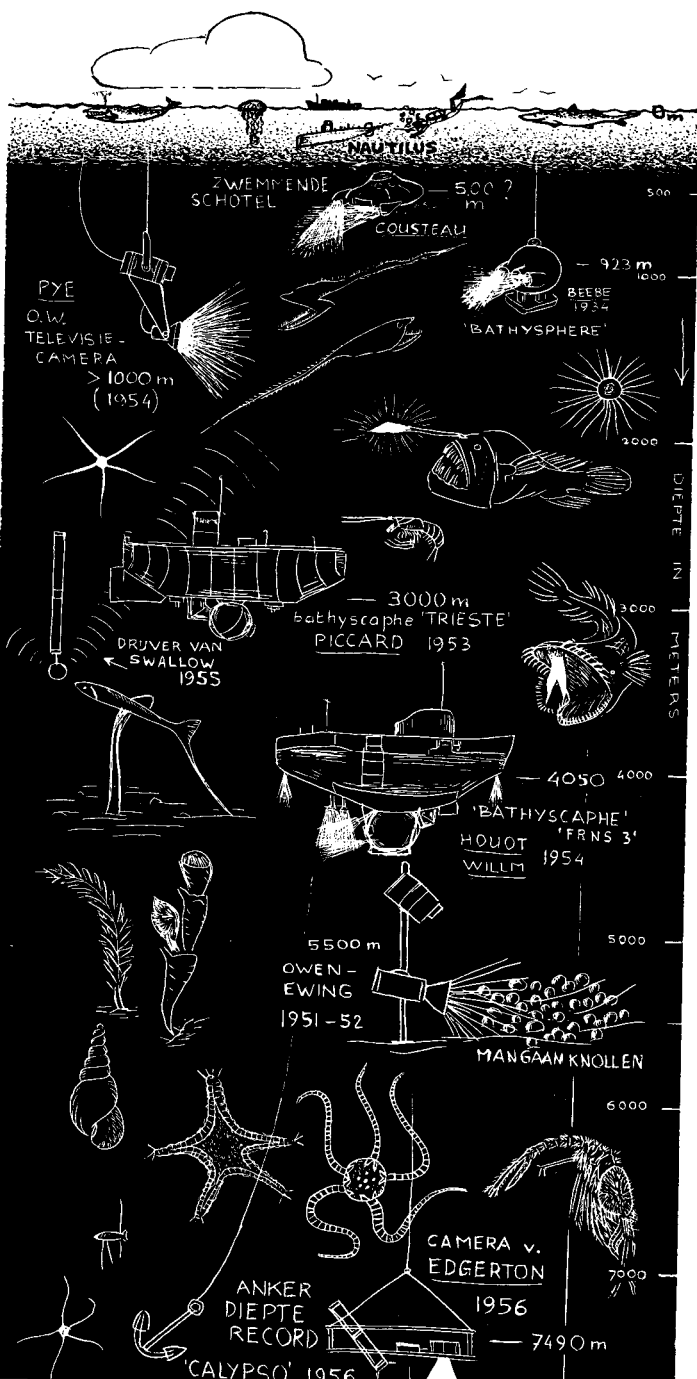 0 m
NAUTILUS
ZWEMMENDE
SCHOTEL
— 500 ?
m
COUSTEAU
500
— 923 m
1000
BEEBE
1934
'BATHYSPHERE'
PYE
O.W.
TELEVISIE-
CAMERA
> 1000 m
(1954)
2000
DIEPTE IN METERS
— 3000 m
bathyscaphe 'TRIESTE'
PICCARD 1953
3000
DRIJVER VAN
SWALLOW
1955
— 4050
4000
'BATHYSCAPHE'
'FRNS 3'
HOUOT
WILLM
1954
5500 m
OWEN-
EWING
1951-52
5000
MANGAANKNOLLEN
6000
CAMERA v.
EDGERTON
1956
7000
— 7490 m
ANKER
DIEPTE
RECORD
'CALYPSO' 1956